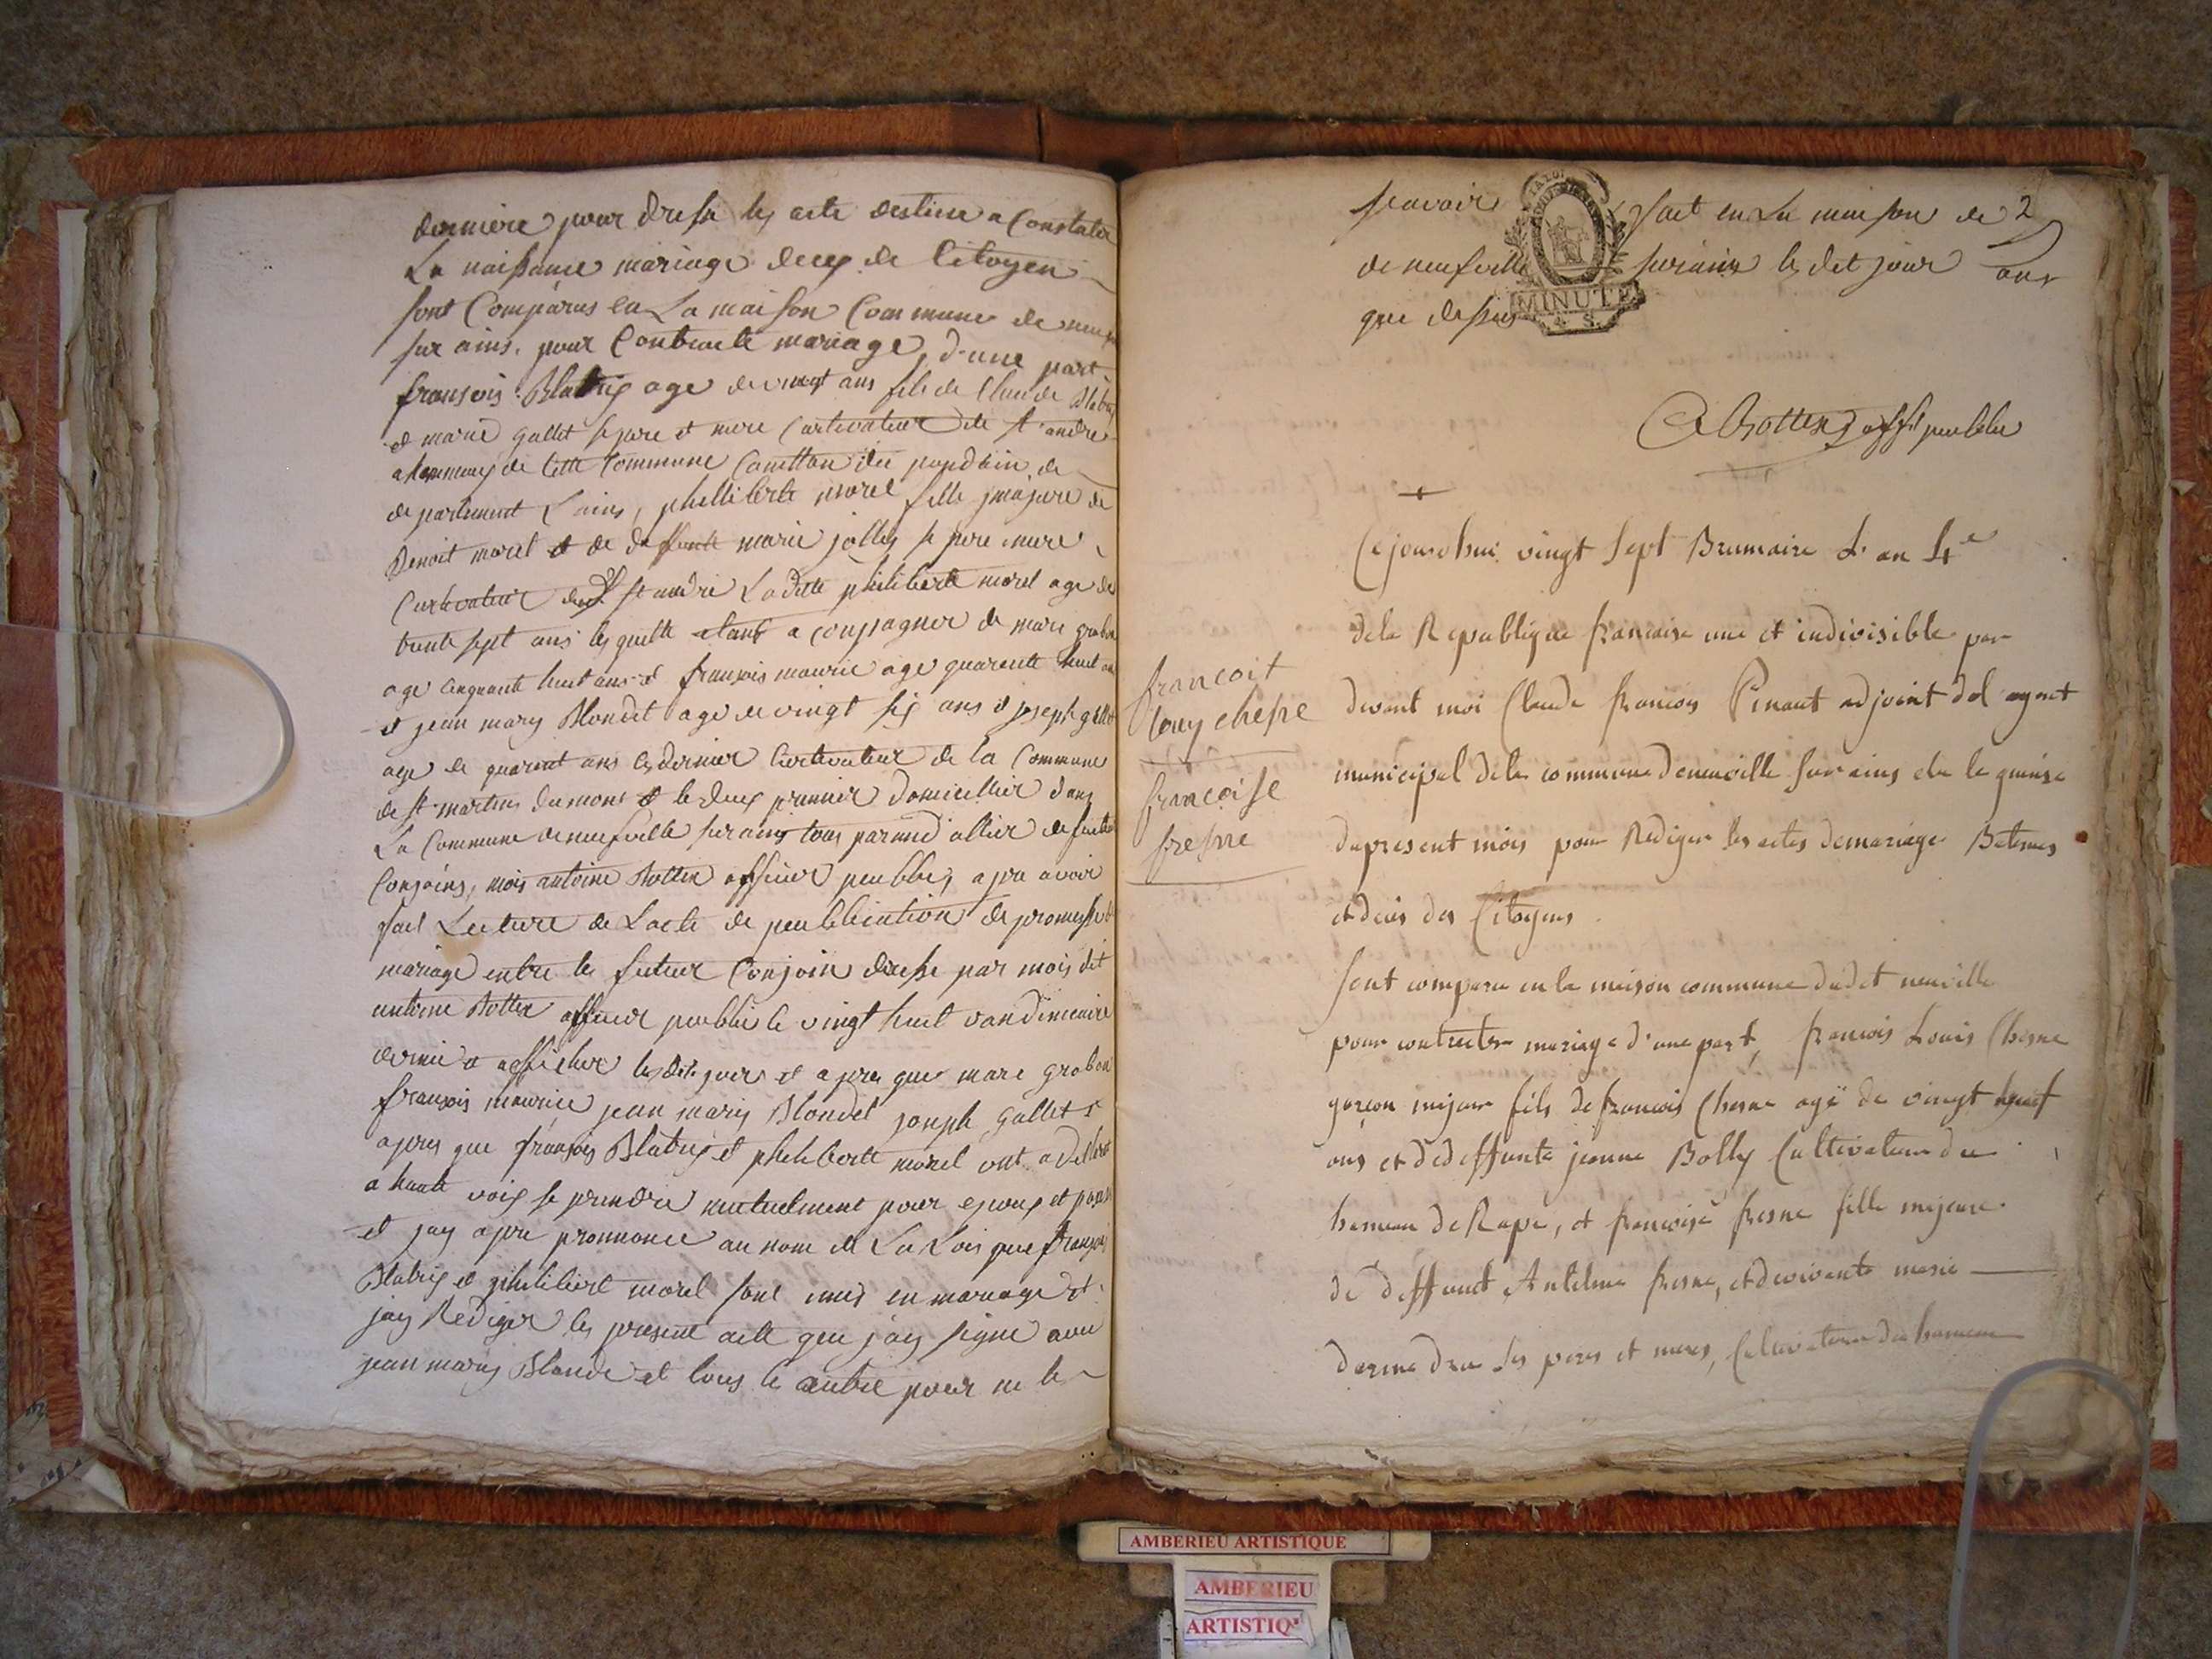 derniere pour dresse les acte destine a Constater
La naissance mariage deces de Citoyen
sont Comparus en La maison Commune de
sur ains. pour Contracte mariage, d'une part
fransois Blatrix age de vingt ans fils de Claude
et marie gallet se pere et mere Curtivateur de st andre
de cette Commune Cantton du pondain de
departement Lains, phillíberte morel fille majeure de
Benoit morel et de deffunte marie jolly se pere mere
Curtivateur de st andre Laditte philiberte morel age de
trente sept ans les quelle etant a compagner de marc grabon
age cinquante huit ans et fransois maurice age quarente huit ans
et jean mary Blondel age de vingt six ans et joseph gallet
age de quarant ans les dernier Curtivateur de la Commune
de st martin dumont et le deux premier domicillier dans
La Commune de neufville sur ains tous parend allier de
Conjoins, mois antoine Botten officier peubbliq apre avoir
fait Lecture de Lacte de peublication de promesse de
mariage entre les futeur Conjoin dresse par mois dit
antoine Botten officier peubblic le vingt huit vandimiaire
dernie et afficher les dit jour et apres que marc grabon
fransois maurice jean mary Blondel joseph Gallet
apres que fransois Blatrix et philiberte morel ont
a haute voix se prendre mutuelment pour epoux et
et jay apre prononce au nom de La Lois que fransois
Blatrix et philibert morel sont unis en mariage et
jay Rediger les present acte que jay signe avec
jean mary Blonde et tous le autre pour ne le
scavoir fait en La maison de 2
de neufville surains les dit jour ans
que dessus
MINUTE
4 S.
Botten offi peubblic
+
Cejourdhui vingt Sept Brumaire L'an 4e
dela Republique francaise une et indivisible par
devant moi Claude francois Pinaut adjoint del agent
municipal dela commune deneuville sur ains elu le quinze
dupresent mois pour Rediger les actes demariage
et deces des Citoyens
francoit
louy chesne
francoise
fresne
Sont comparu en la maison commune dudet neuville
pour contracter mariage d'une part, francois Louis Chesne
garçon majeur fils de francois Chesne agé de vingt neuf
ans et de deffunte jeanne Bolly Cultivateur du
hameau de Rape, et francoise fresne fille majeure
de deffunt Antelme fresne, et de vivante marie
ses peres et meres, Cultivateur du hameau
AMBERIEU ARTISTIQUE
AMBERIEU
ARTISTIQ